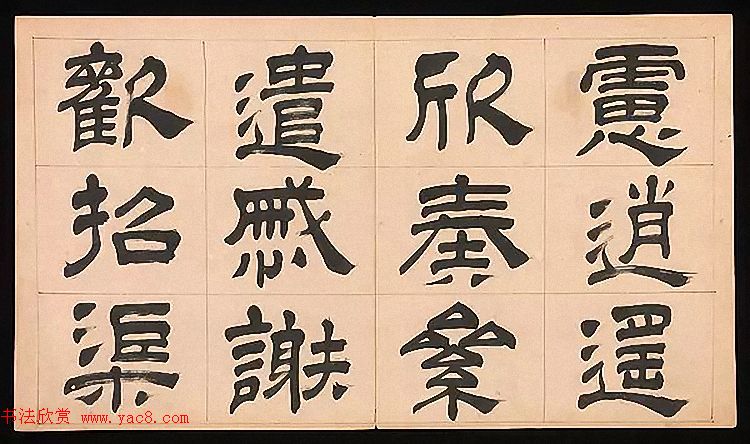 慮逍遥
欣奏累
遣慼謝
歡招渠
书法欣赏 www.yac8.com